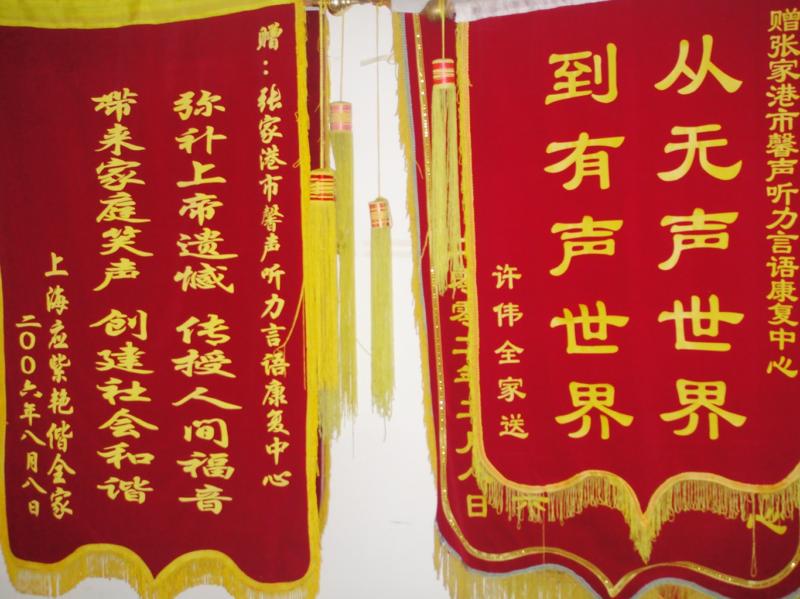 赠：张家港市馨声听力言语康复中心
弥补上帝遗憾 传授人间福音
带来家庭笑声 创建社会和谐
上海应紫艳偕全家
二00六年八月八日
赠张家港市馨声听力言语康复中心
从无声世界
到有声世界
许伟全家送